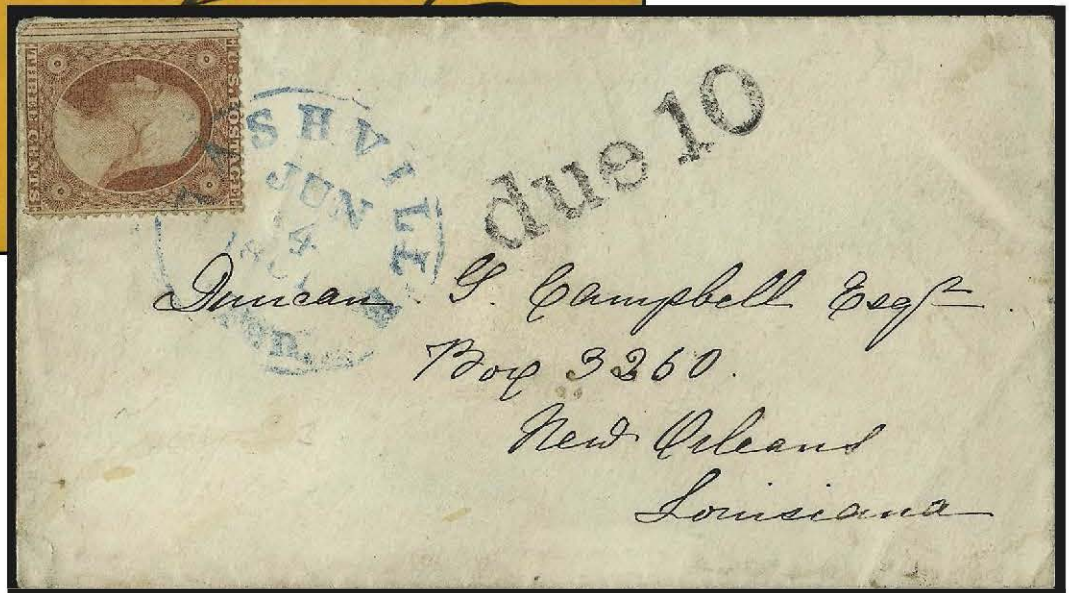 U.S. POSTAGE
THREE CENTS
NASHVILLE
JUN
14
1861
due 10
Duncan G. Campbell Esqr
Box 3260.
New Orleans
Louisiana